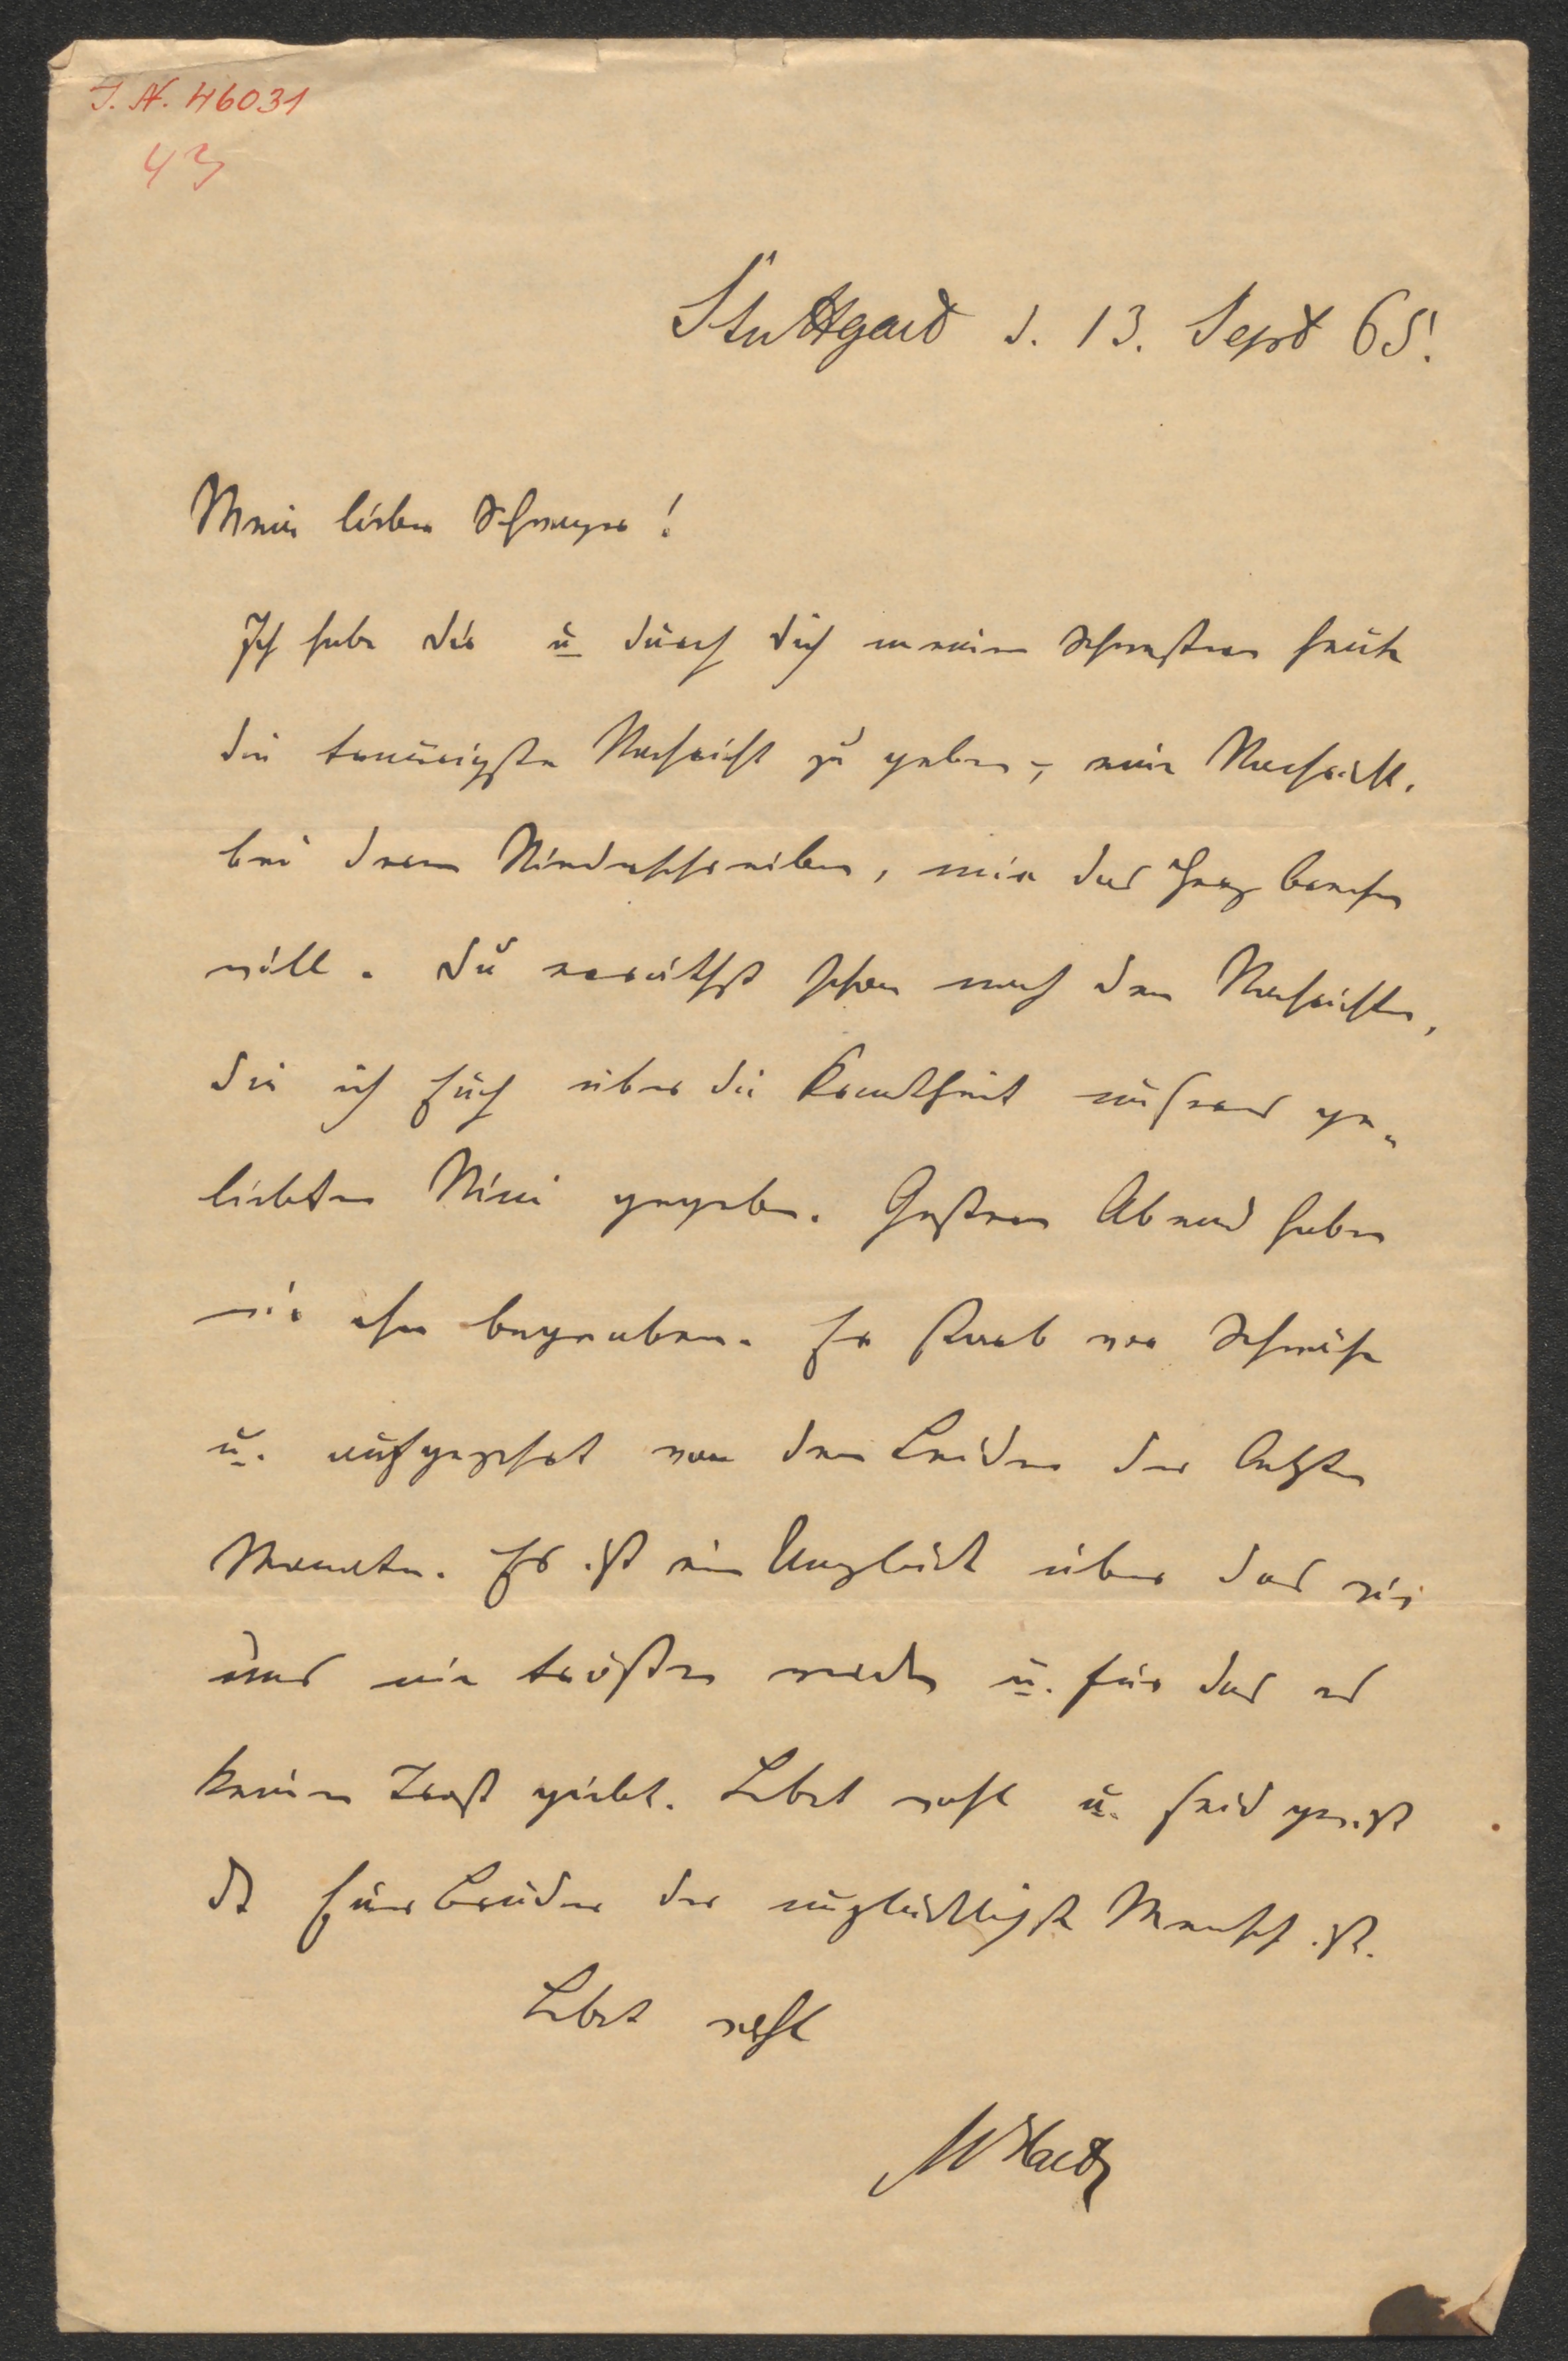 I. N. 46031
43
Stuttgart d. 13. Sept 65!
Mein lieber Schwager!
Ich habe dir u durch dich meinen Schwestern heute
die traurigste Nachricht zu geben, eine Nachricht,
bei deren Niederschreiben, mir das Herz brechen
will. Du erräthst schon nach den Nachrichten,
die ich Euch über die Krankheit unseres ge„
liebten gegeben. Gestern Abend haben
wir ihn begraben. Er starb vor Schwäche
u. aufgezehrt von den Leiden der letzten
Monate. Es ist ein Unglück über das wir
uns nie trösten werden u. für das es
keinen Trost giebt. Lebet wohl u. seid gewiß
dß Euer Bruder der unglücklichste Mensch ist.
Lebet wohl